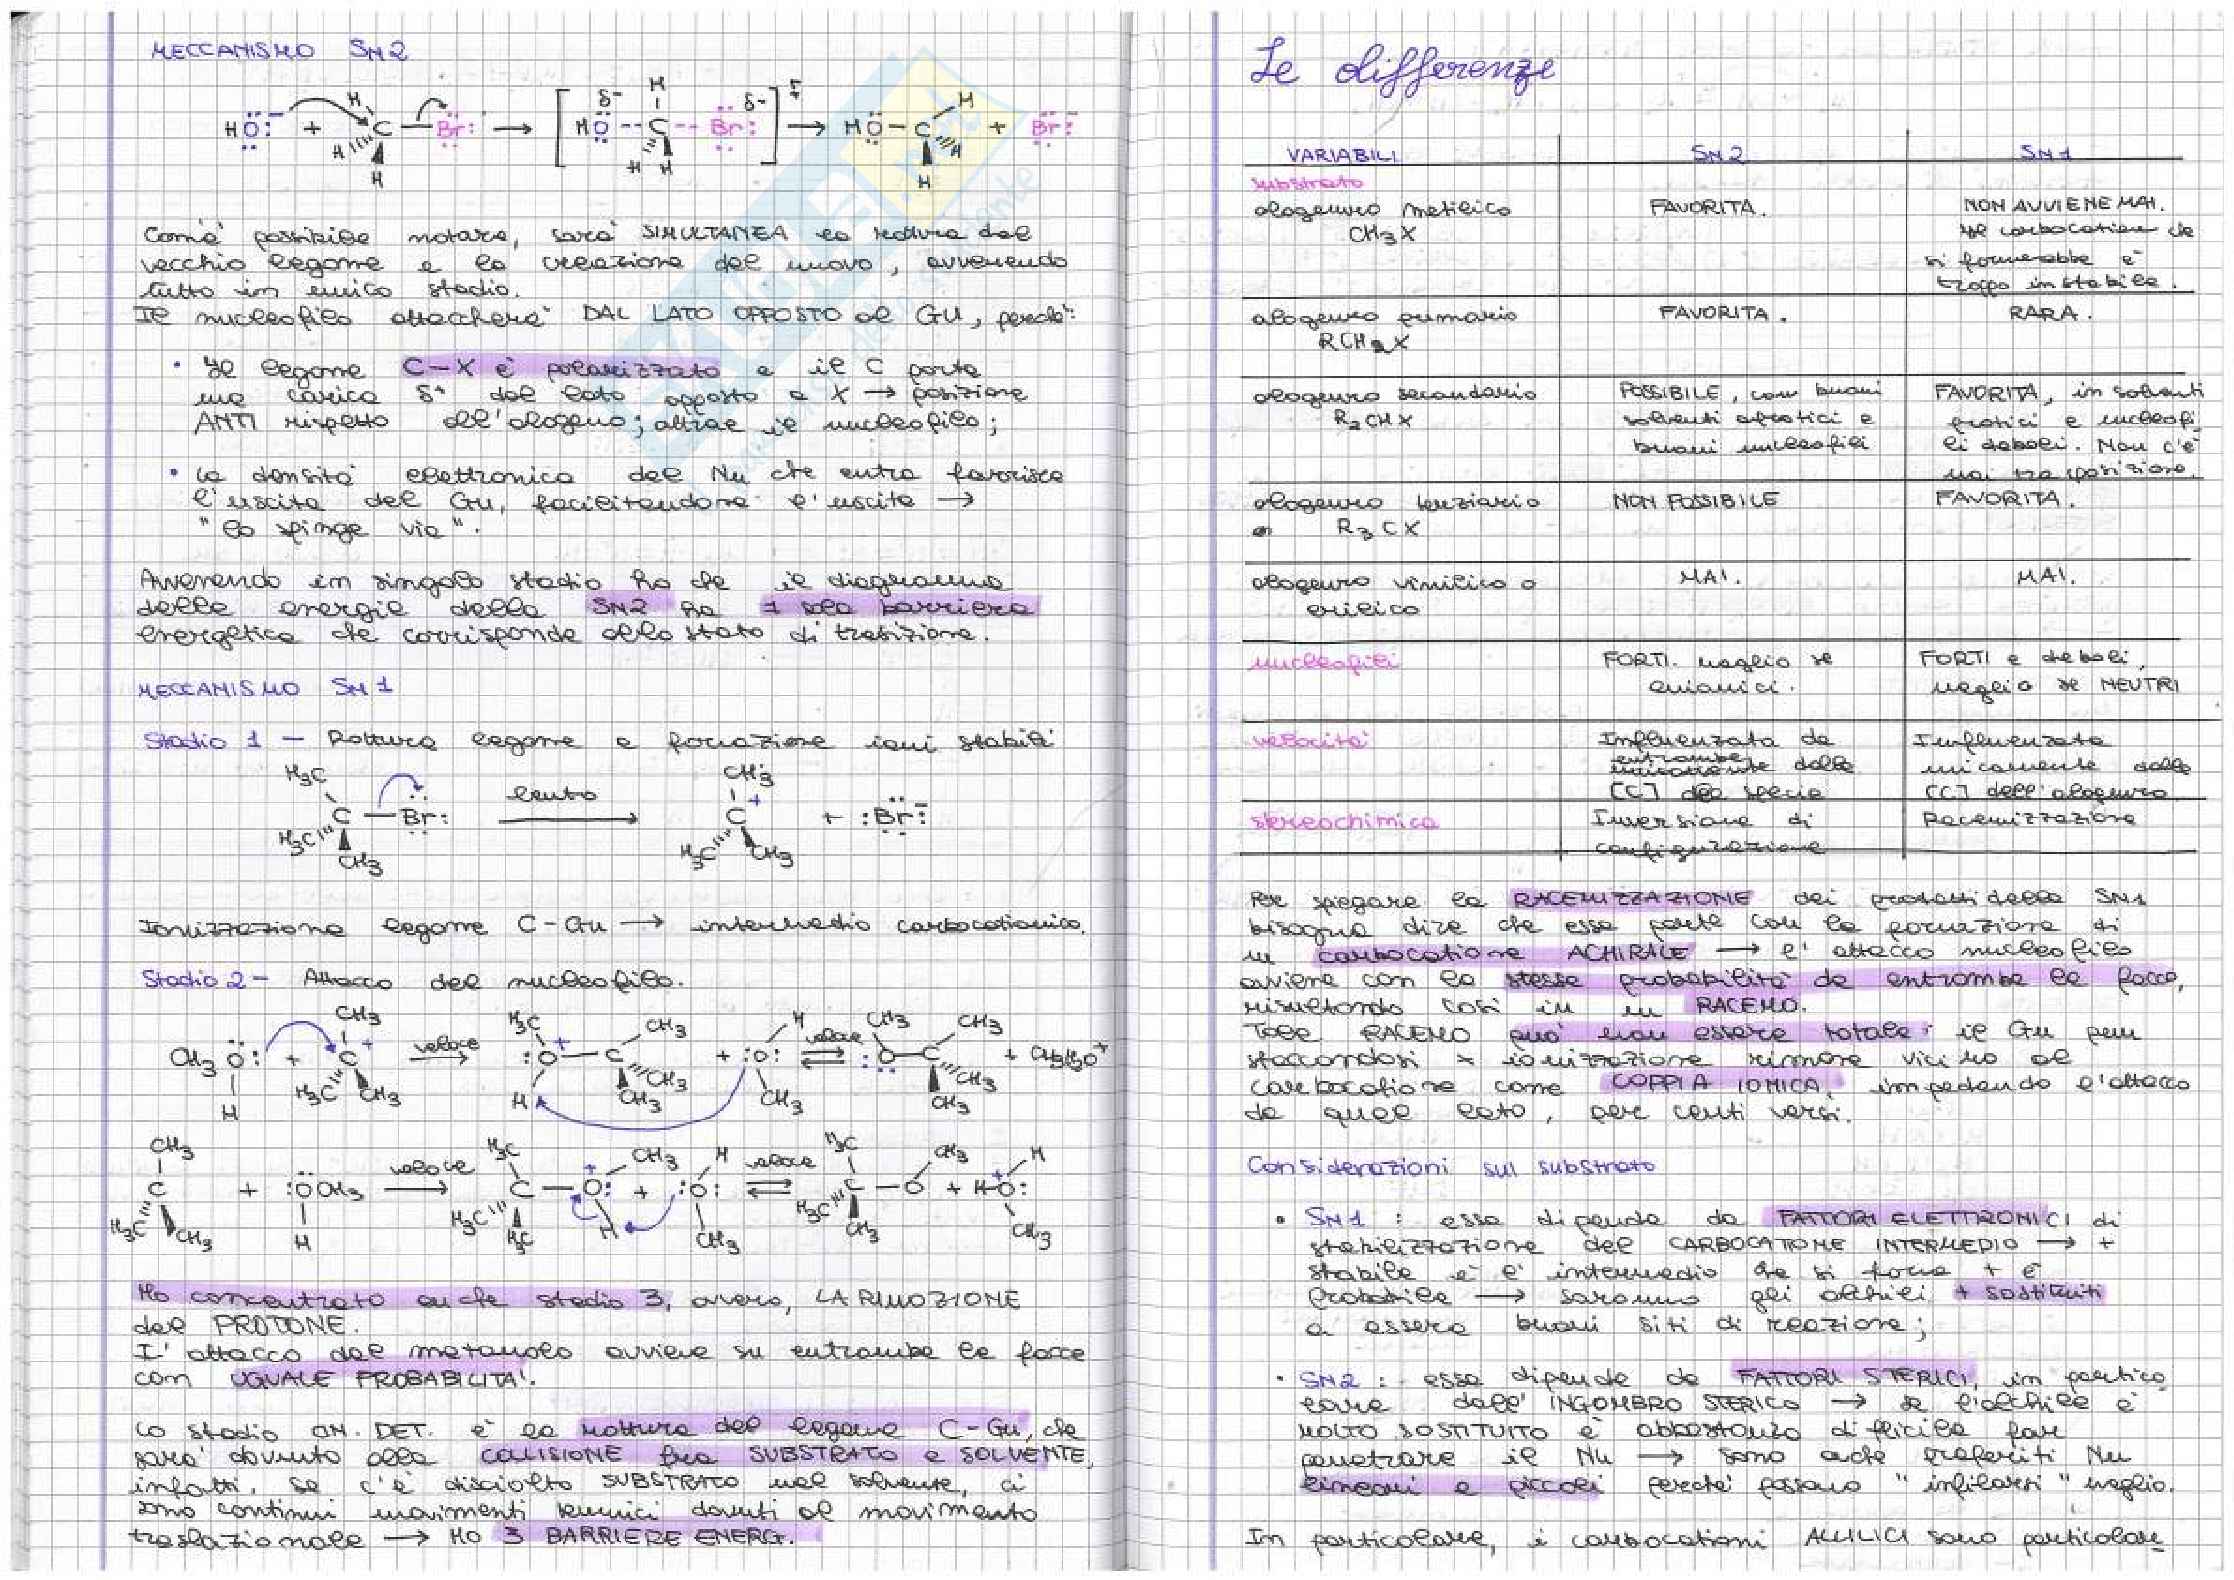 MECCANISMO SN2
HO:⁻ + H H H C — Br: → [HO -- C -- Br:]‡ → HO — C + Br:⁻
Com'è possibile notare, sarà SIMULTANEA la rottura del
vecchio legame e la creazione del nuovo, avvenendo
tutto in unico stadio.
Il nucleofilo attaccherà DAL LATO OPPOSTO al GU, perché:
• Il legame C-X è polarizzato e il C porta
una carica δ+ dal lato opposto a X → posizione
ANTI rispetto all'alogeno; attrae il nucleofilo;
• La densità elettronica del Nu che entra favorisce
l'uscita del GU, facilitandone l'uscita →
"lo spinge via".
Avvenendo in singolo stadio ho che il diagramma
delle energie della SN2 ha 1 sola barriera
energetica che corrisponde allo stato di transizione.
MECCANISMO SN1
Stadio 1 - Rottura legame e formazione ioni stabili
H3C H3C CH3 C — Br: lento → CH3 C+ H3C CH3 + :Br:⁻
Ionizzazione legame C-GU → intermedio carbocationico.
Stadio 2 - Attacco del nucleofilo.
CH3 O: H + CH3 C+ H3C CH3 veloce → H3C :O+ — C CH3 CH3 CH3 H + :O: H CH3 veloce ⇌ CH3 :O — C CH3 CH3 CH3 + CH3H2O+
CH3 C H3C CH3 + :OCH3 H veloce → H3C C — O+: CH3 H3C H3C H + :O: H CH3 veloce ⇌ H3C C — O CH3 H3C CH3 + H-O+: H CH3
Ho concentrato anche stadio 3, ovvero, LA RIMOZIONE
del PROTONE.
L'attacco del metanolo avviene su entrambe le facce
con UGUALE PROBABILITA'.
Lo stadio CIN. DET. è la rottura del legame C-GU, che
sarà dovuto alla COLLISIONE fra SUBSTRATO e SOLVENTE,
infatti, se c'è disciolto SUBSTRATO nel solvente, ci
sono continui movimenti termici dovuti al movimento
traslazionale → HO 3 BARRIERE ENERG.
Le differenze
VARIABILI SN2 SN1
substrato
alogenuro metilico CH3X FAVORITA. NON AVVIENE MAI.
Il carbocatione che
si formerebbe è
troppo instabile.
alogenuro primario RCH2X FAVORITA. RARA.
alogenuro secondario POSSIBILE, con buoni FAVORITA, in solventi
R2CHX solventi aprotici e protici e nucleofi
buoni nucleofili li deboli. Non c'è
mai trasposizione.
alogenuro terziario NON POSSIBILE FAVORITA.
R3CX
alogenuro vinilico o MAI. MAI.
arilico
nucleofili FORTI. meglio se FORTI e deboli,
anionici. meglio se NEUTRI
velocità Influenzata da Influenzata
entrambe dalle unicamente dalla
[C] delle specie [C] dell'alogenuro
stereochimica Inversione di Racemizzazione
configurazione
Per spiegare la RACEMIZZAZIONE dei prodotti della SN1
bisogna dire che essa parte con la formazione di
un carbocatione ACHIRALE → l'attacco nucleofilo
avviene con la stessa probabilità da entrambe le facce,
risultando così in un RACEMO.
Tale RACEMO può non essere totale: il GU pur
staccandosi x ionizzazione rimane vicino al
carbocatione come COPPIA IONICA, impedendo l'attacco
da quel lato, per certi versi.
Considerazioni sul substrato
• SN1 : essa dipende da FATTORI ELETTRONICI di
stabilizzazione del CARBOCATIONE INTERMEDIO → +
stabile è l'intermedio che si forma + è
probabile → saranno gli alchili + sostituiti
a essere buoni siti di reazione;
• SN2 : essa dipende da FATTORI STERICI, in partico
lare dall'INGOMBRO STERICO → se l'alchile è
MOLTO SOSTITUITO è abbastanza difficile far
penetrare il Nu → sono anche preferiti Nu
lineari e piccoli perché possano "infilarsi" meglio.
In particolare, i carbocationi ALLILICI sono particolar